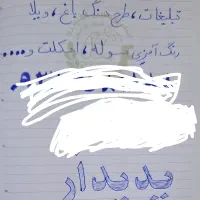 تبلیغات، طرح سنگ باغ، ویلا
رنگ آمزی سوله، اسکلت و....
پدیدار